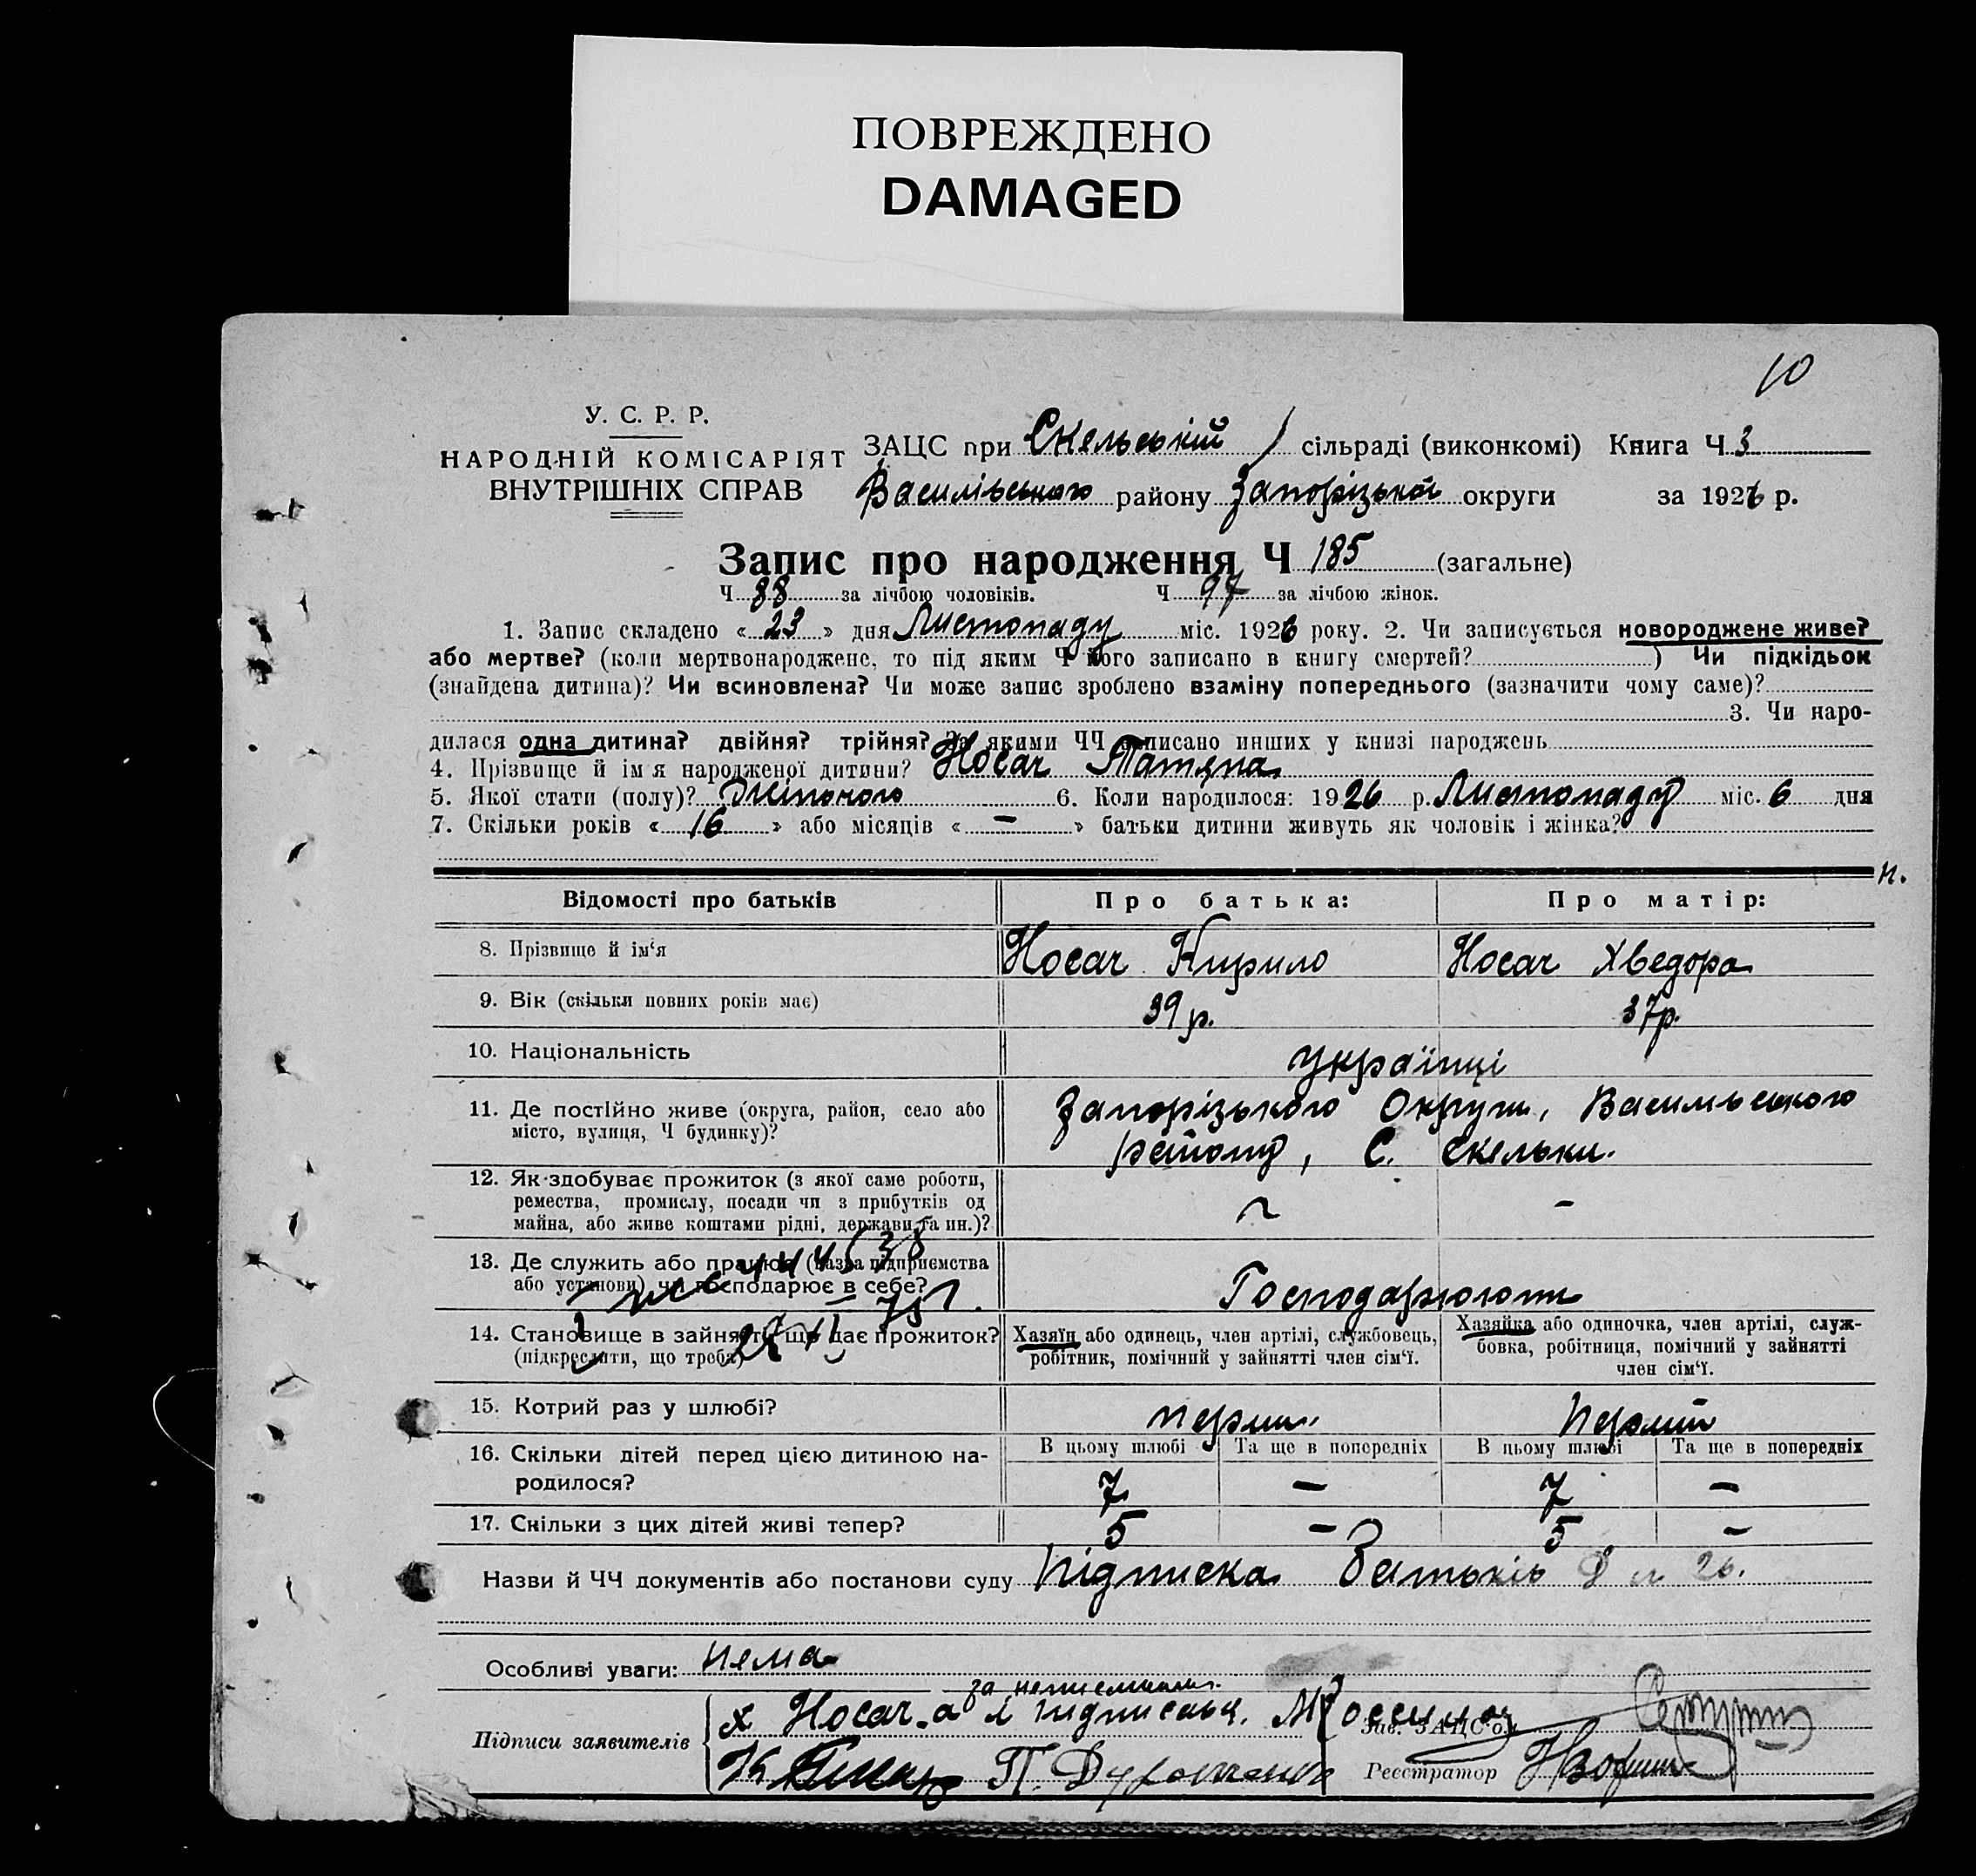 ПОВРЕЖДЕНО
DAMAGED
10
У. С. Р. Р.
НАРОДНІЙ КОМІСАРІЯТ
ВНУТРІШНІХ СПРАВ
ЗАЦС при Скельській сільраді (виконкомі) Книга Ч 3
Василівського району Запорізької округи за 1926 р.
Запис про народження Ч 185 (загальне)
Ч 88 за лічбою чоловіків. Ч 97 за лічбою жінок.
1. Запис складено « 23 » дня Листопаду міс. 1926 року. 2. Чи записується новороджене живе?
або мертве? (коли мертвонароджене, то під яким Ч його записано в книгу смертей? ) Чи підкідьок
(знайдена дитина)? Чи всиновлена? Чи може запис зроблено взаміну попереднього (зазначити чому саме)?
3. Чи наро-
дилася одна дитина? двійня? трійня? За якими ЧЧ записано инших у книзі народжень
4. Прізвище й ім'я народженої дитини? Носач Татяна
5. Якої стати (полу)? Жіночого 6. Коли народилося: 1926 р. Листопаду міс. 6 дня
7. Скільки років « 16 » або місяців « – » батьки дитини живуть як чоловік і жінка?
н.
Відомості про батьків Про батька: Про матір:
8. Прізвище й ім'я Носач Кирило Носач Хведора
9. Вік (скільки повних років має) 39 р. 37 р.
10. Національність Українці
11. Де постійно живе (округа, район, село або Запорізького Округи, Васильського
місто, вулиця, Ч будинку)? району, С. Скельки.
12. Як здобуває прожиток (з якої саме роботи,
ремества, промислу, посади чи з прибутків од
майна, або живе коштами рідні, держави та ин.)? – –
13. Де служить або працює (назва підприємства
або установи) чи господарює в себе? Господарюють
14. Становище в зайнятті що дає прожиток? Хазяїн або одинець, член артілі, службовець, Хазяйка або одиночка, член артілі, служ-
(підкреслити, що треба) робітник, помічний у зайнятті член сім'ї. бовка, робітниця, помічний у зайнятті
член сім'ї.
15. Котрий раз у шлюбі? перший Перший
16. Скільки дітей перед цією дитиною на- В цьому шлюбі Та ще в попередніх В цьому шлюбі Та ще в попередніх
родилося? 7 – 7 –
17. Скільки з цих дітей живі тепер? 5 – 5 –
Назви й ЧЧ документів або постанови суду Підписка Батьків 26.
Особливі уваги: нема
за неписьмен.
Підписи заявителів х Носач Зав. ЗАЦС'ом
Реєстратор